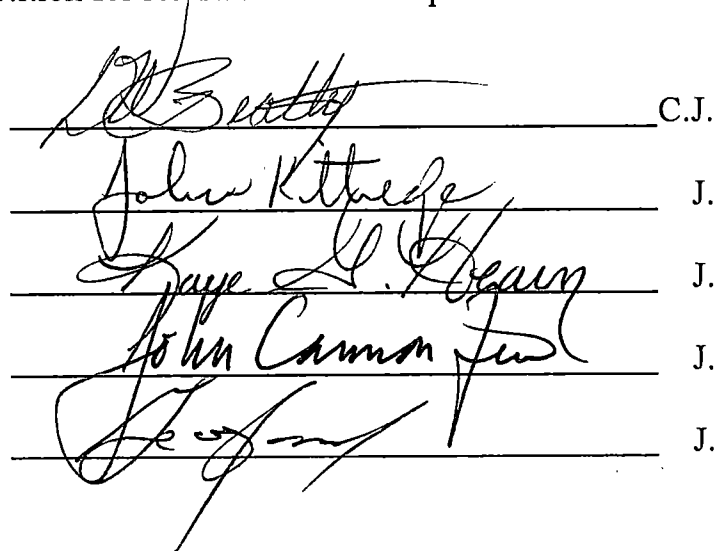 for
Beatty C.J.
John Kittredge J.
Kaye G. Hearn J.
John Cannon Few J.
J.